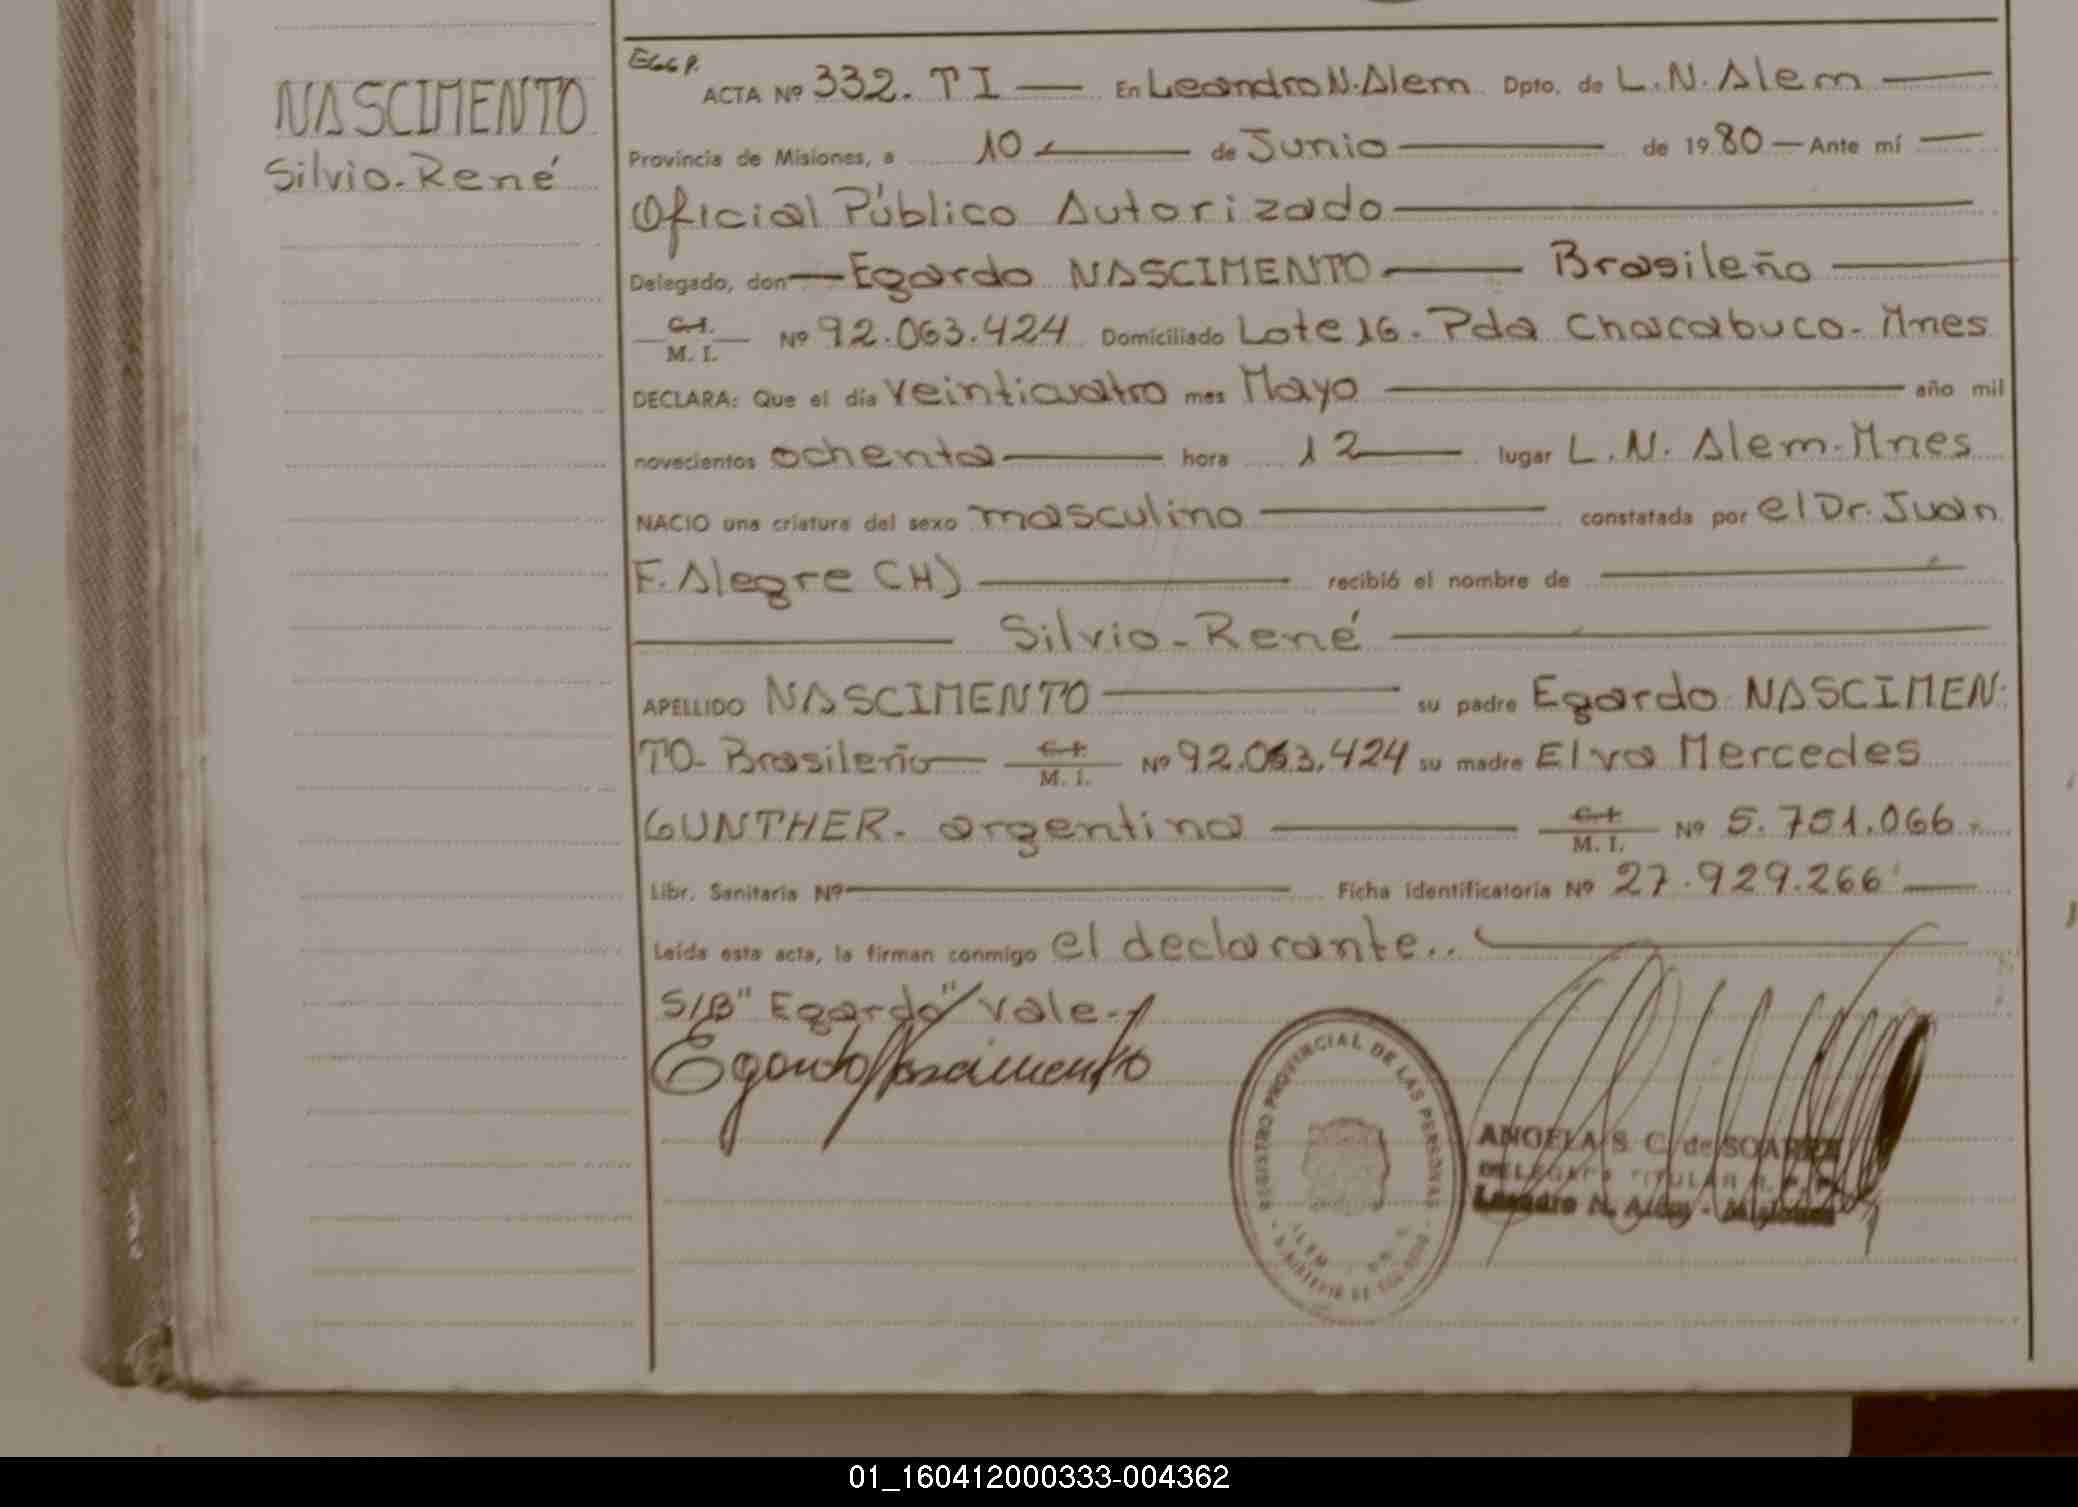 NASCIMENTO
Silvio-René
EGGP.
ACTA Nº 332. T I — En Leandro N. Alem Dpto. de L. N. Alem —
Provincia de Misiones, a 10 — de Junio — de 19 80 — Ante mí —
Oficial Público Autorizado —
Delegado, don — Egardo NASCIMENTO — Brasileño —
C.I. M. I. Nº 92.063.424 Domiciliado Lote 16. Pda Chacabuco - Mnes
DECLARA: Que el día veinticuatro mes Mayo — año mil
novecientos ochenta — hora 12 — lugar L. N. Alem - Mnes
NACIO una criatura del sexo masculino — constatada por el Dr. Juan
F. Alegre (H) — recibió el nombre de —
— Silvio - René —
APELLIDO NASCIMENTO — su padre Egardo NASCIMEN-
TO - Brasileño — C.I. M. I. Nº 92.063.424 su madre Elva Mercedes
GUNTHER - argentina — C.I. M. I. Nº 5.751.066
Libr. Sanitaria Nº — Ficha identificatoria Nº 27.929.266 —
Leída esta acta, la firman conmigo el declarante.. —
S/B "Egardo" Vale-
Egardo Nascimento
REGISTRO PROVINCIAL DE LAS PERSONAS
ALEM
ANGELA S. C. de
DELEGADA TITULAR R. P. P.
Leandro N. Alem - Misiones
01_160412000333-004362